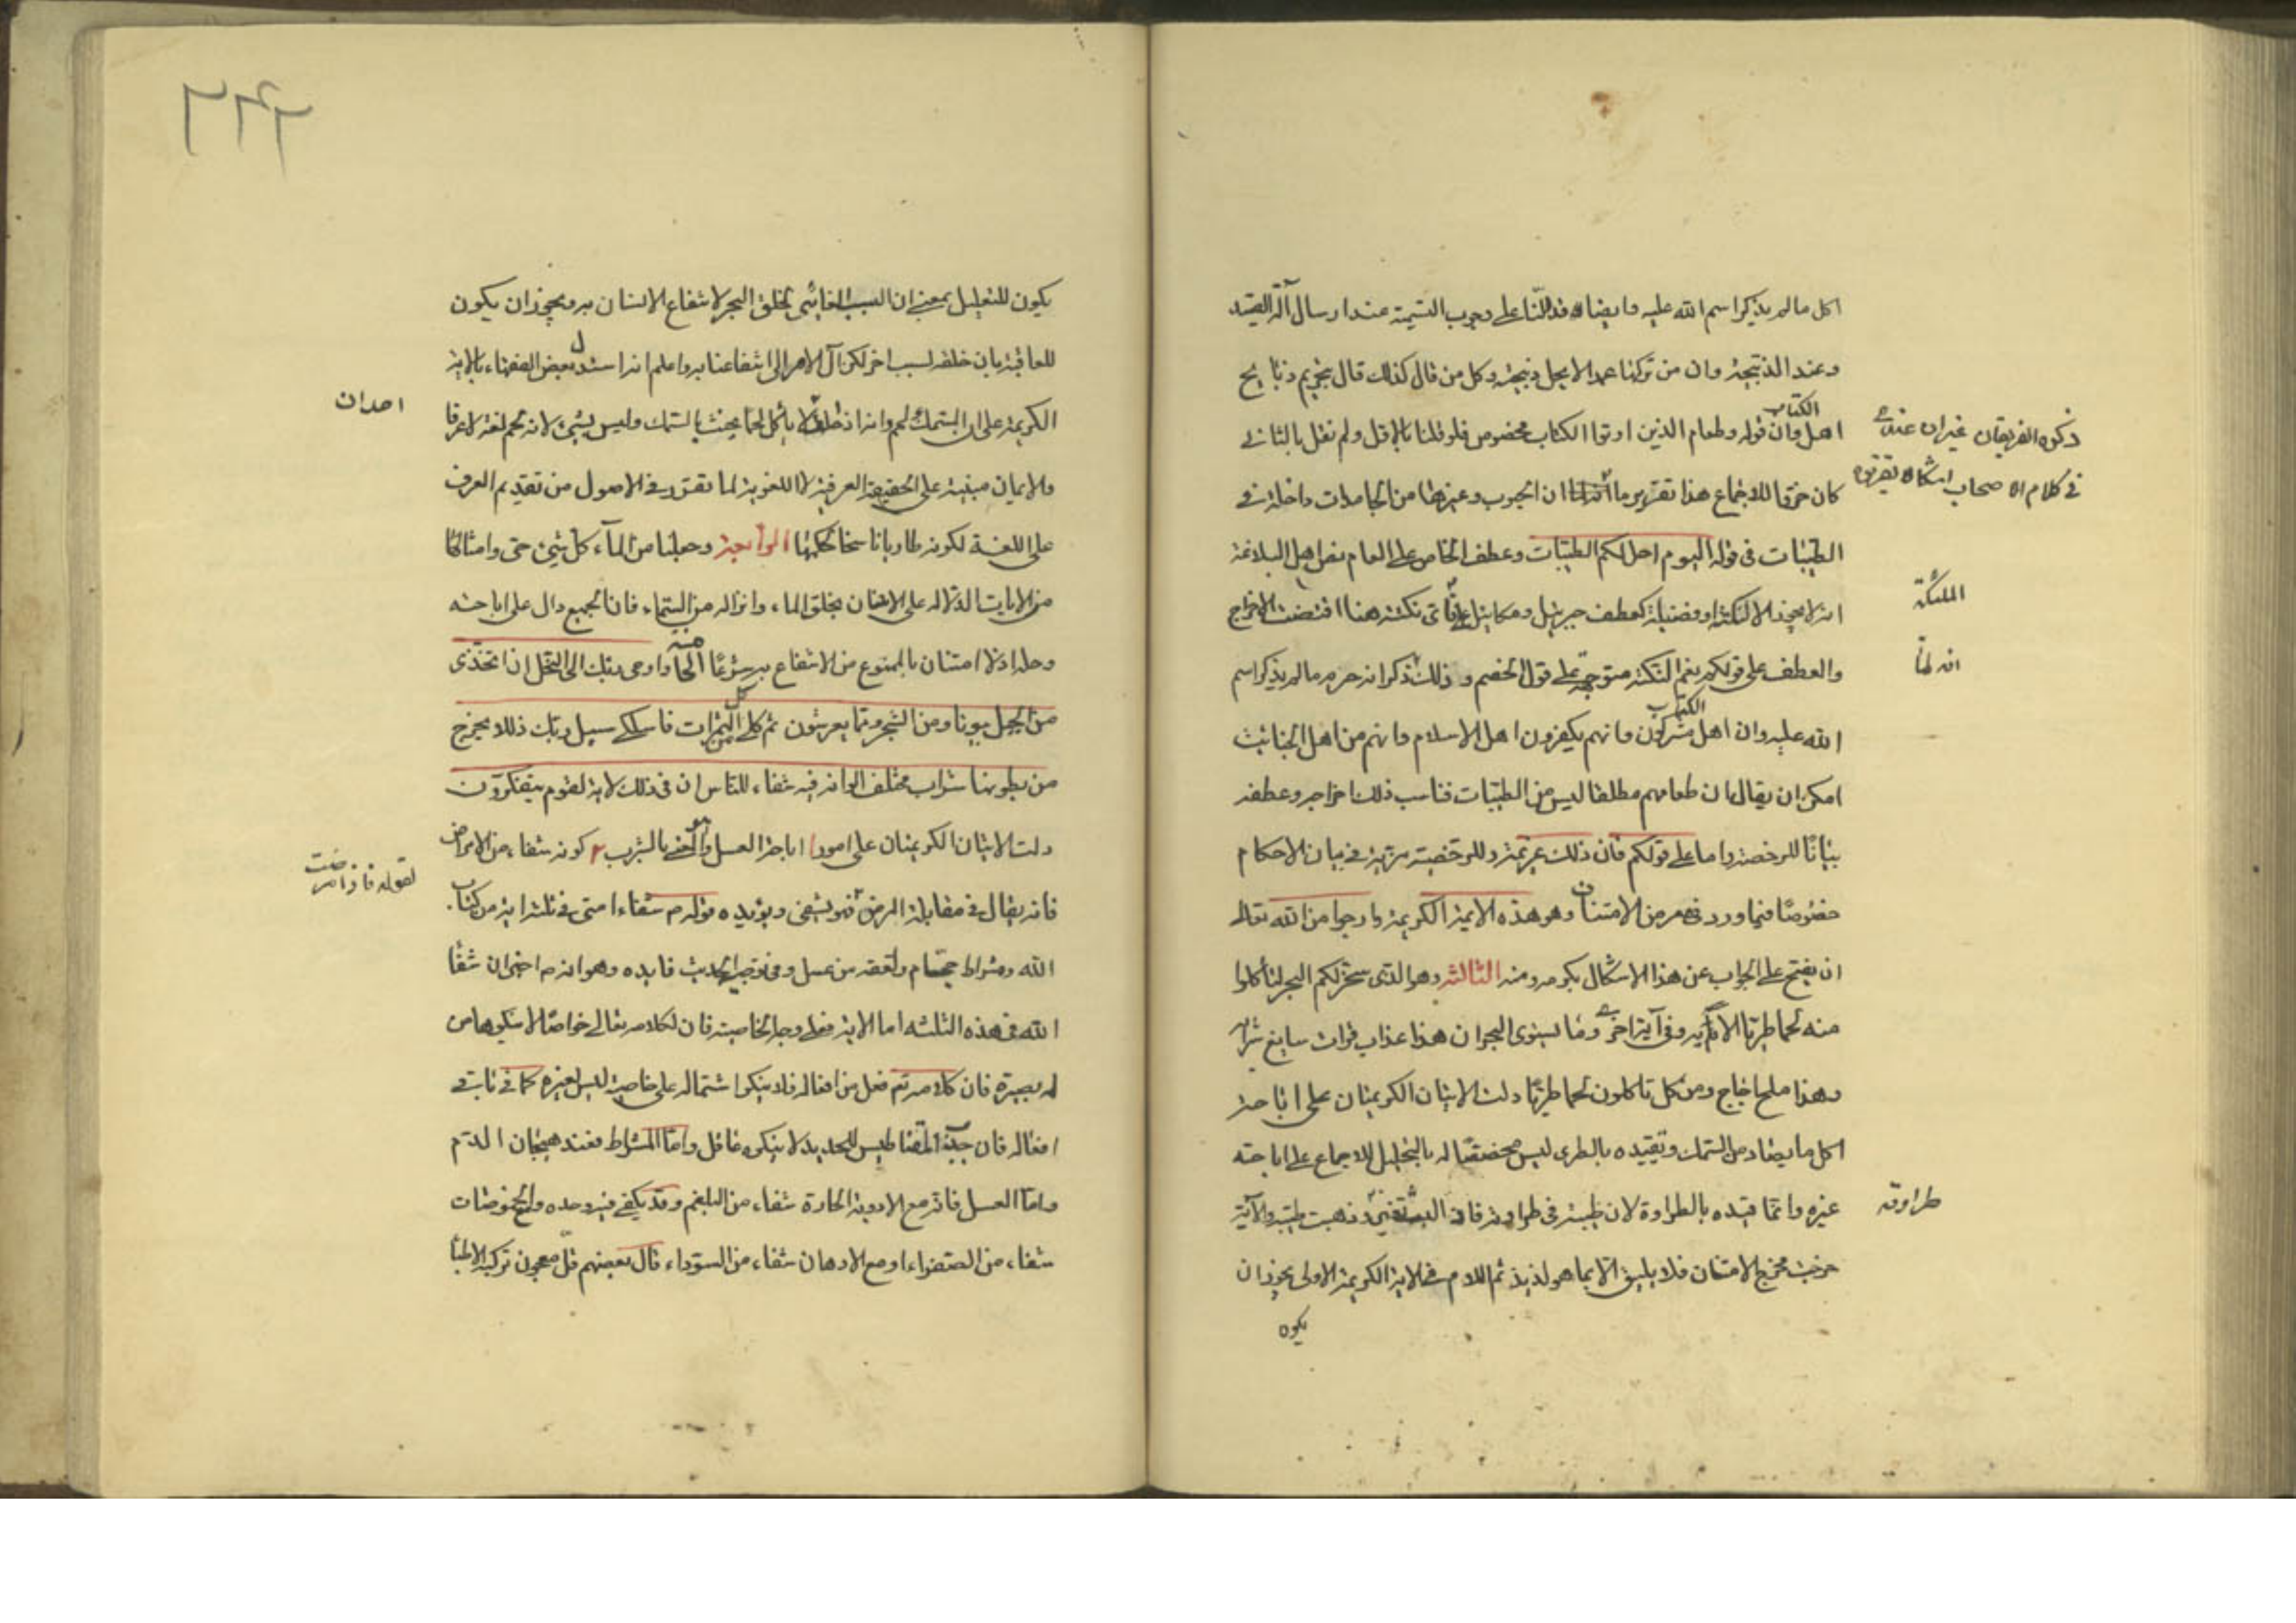 اكل ما لم يذكر اسم الله عليه وايضا قد دللنا على وجوب التسمية عند ارسال آلة الصيد
وعند الذبيحة وان من تركها عمدا لا يحل ذبيحته وكل من قال كذلك قال بتحريم ذبايح
اهل الكتاب وان قوله وطعام الذين اوتوا الكتاب مخصوص فلو قلنا بالاول ولم نقل بالثاني
كان خرقا للاجماع هذا تقرير ما ان الحبوب وغيرها من الجامدات داخلة في
الطيبات في قوله اليوم احل لكم الطيبات وعطف الخاص على العام نص اهل البلاغة
انه لا يجوز الا لنكتة او فضيلة كعطف جبريل وميكائيل على فاى نكتة هنا اقتضت الاخراج
والعطف على قولكم نعم النكتة متوجهة على قول الخصم وذلك ذكر انه حرم ما لم يذكر اسم
الله عليه وان اهل الكتاب مشركون وانهم يكفرون اهل الاسلام وانهم من اهل الخبائث
امكن ان يقال ان طعامهم مطلقا ليس من الطيبات فناسب ذلك اخراجه وعطفه
بيانا للرخصة واما على قولكم فان ذلك عزيمة وللرخصة مزية في بيان الاحكام
خصوصا فيما ورد في معرض الامتنان وهو هذه الاية الكريمة وارجوا من الله تعالى
ان يفتح على الجواب عن هذا الاشكال بكرمه ومنه الثالثة وهو الذى سخر لكم البحر لتأكلوا
منه لحما طريا الآية وفى آية اخرى وما يستوى البحران هذا عذب فرات سايغ شرابه
وهذا ملح اجاج ومن كل تاكلون لحما طريا دلت الايتان الكريمتان على اباحة
اكل ما يصاد من السمك وتقييده بالطرى ليس مخصصا له بالتحليل للاجماع على اباحة
غيره وانما قيده بالطراوة لان طيبته فى طراوته فان ذهبت طيبته والآية
خرجت مخرج الامتنان فلا يليق الا بما هو لذيذ ثم اللام في الاية الكريمة الاولى يجوز ان
يكون
ذكره الفريقان غير ان عندى
في كلام الاصحاب اشكالا تقريره
الملئكة
انه لما
طراوته
يكون للتعليل بمعنى ان السبب الغائى لخلق البحر لانتفاع الانسان به ويجوز ان يكون
للعاقبة بان خلقه لسبب اخر لكن آل الامر الى انتفاعنا به واعلم انه استدل بعض الفقهاء بالاية
الكريمة على ان السمك لحم وانه اذا حلف لا ياكل لحما يحنث بالسمك وليس بشىء لانه لحم لغة لا عرفا
والايمان مبنية على الحقيقة العرفية لا اللغوية لما تقرر في الاصول من تقديم العرف
على اللغة لكونه طاريا ناسخا لحكمها الرابعة وجعلنا من الماء كل شىء حى وامثالها
من الايات الدالة على الامتنان بخلق الماء وانزاله من السماء فان الجميع دال على اباحته
وحله اذ لا امتنان بالممنوع من الانتفاع به شرعا الخامسة واوحى ربك الى النحل ان اتخذى
من الجبل بيوتا ومن الشجر ومما يعرشون ثم كلى من كل الثمرات فاسلكى سبل ربك ذللا يخرج
من بطونها شراب مختلف الوانه فيه شفاء للناس ان فى ذلك لاية لقوم يتفكرون
دلت الايتان الكريمتان على امور ا اباحة العسل بالشرب ٢ كونه شفاء من الامراض
فانه يقال في مقابلة المرض فهو يشفى ويؤيده قوله م شفاء امتى في ثلث اية من كتاب
الله ومشراط حجام ولعقة من عسل وفى الحديث فايده وهو انه م اخبر ان شفا
الله في هذه الثلثه اما الاية فعلى وجه الخاصية فان لكلامه تعالى خواصا لا ينكرها من
له بصيرة فان كلامه تع فعل من افعاله فلا ينكر اشتماله على خاصية ليس لغيره كما في باقي
افعاله فان جذبة المقناطيس للحديد لا ينكره عاقل واما المشراط فعند هيجان الدم
واما العسل فانه مع الادوية الحارة شفاء من البلغم وقد يكفى فيه وحده ومع الحموضات
شفاء من الصفراء ومع الادهان شفاء من السوداء قال بعضهم قل معجون تركبه الاطبا
احد ان
لقوله فاذا مرضت